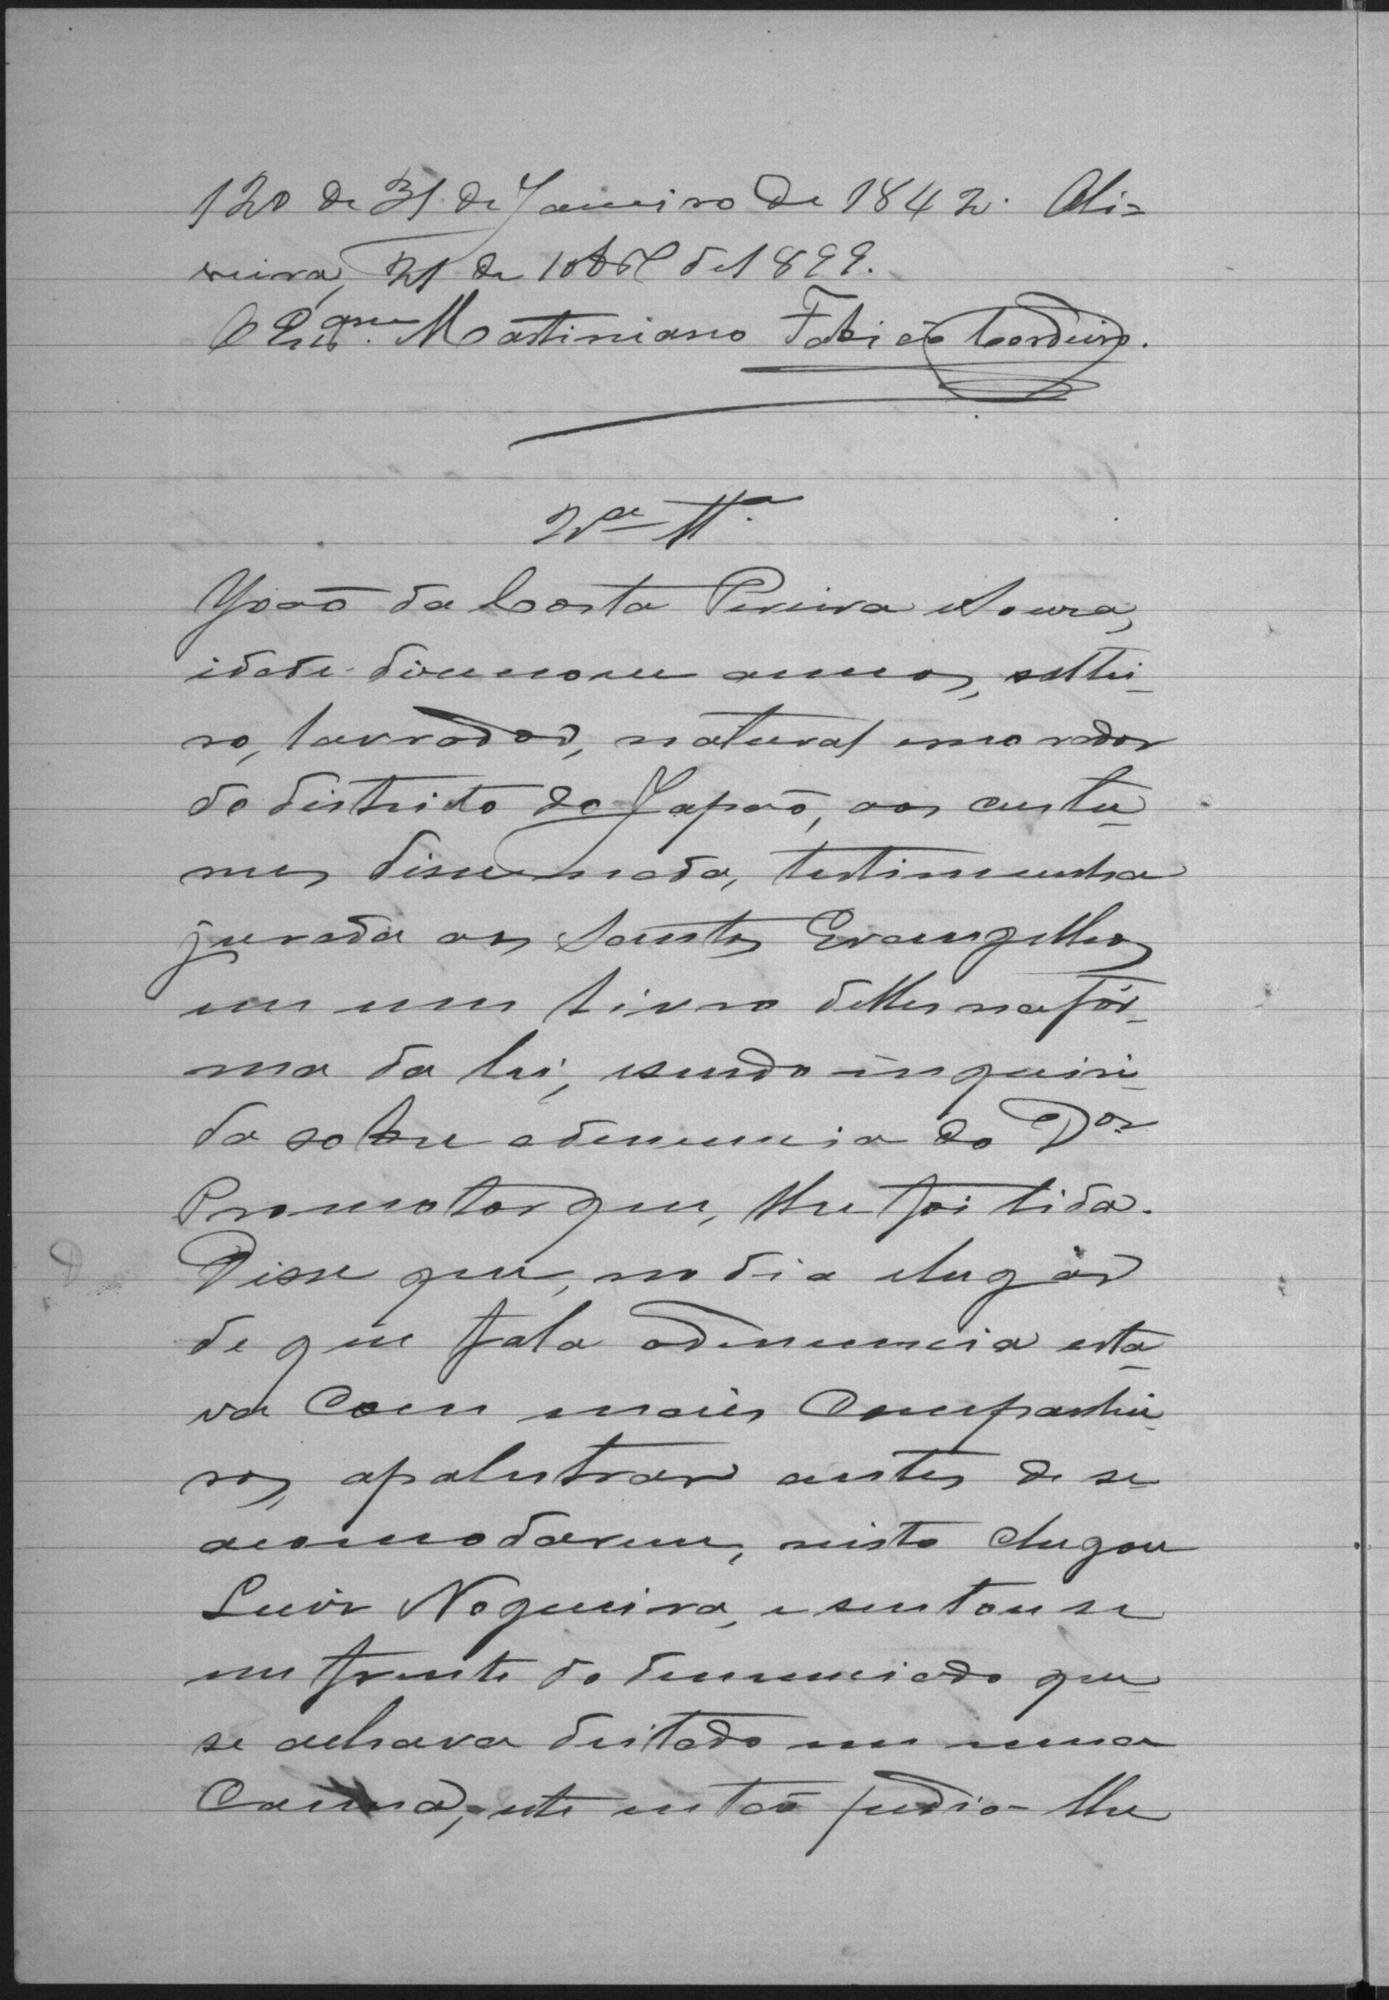 120 de 31 de Janeiro de 1842. Oli=
veira, 21 de Abril de 1899.
O Martiniano Fabião Cordeiro.
2ª Tª.
João da Costa Pereira
idade desenove annos, soltei-
ro, lavrador, natural e morador
do distrito do Japão, aos custu-
mes disse nada, testimunha
jurada aos Santos Evangelhos
em um livro delles na fór-
ma da lei, e sendo inquiri-
da sobre a denuncia do Dor
Promotor que, lhe foi lida.
Disse que, no dia e lugar
de que fala a denuncia esta-
va com mais companhei-
ros, a palestrar antes de se
acomodarem, nisto chegou
Luiz Nogueira, e sentou se
em frente do denunciado que
se achava deitado em uma
cama, este então pedio-lhe